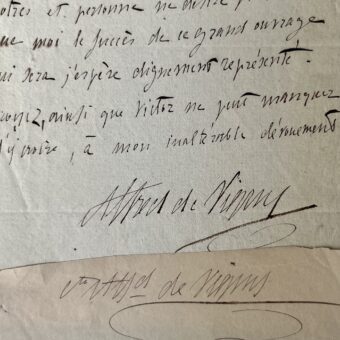 otres et personne ne désire p
ue moi le succès de ce grand ouvrage
ui sera j'espère dignement représenté.
royez, ainsi que Victor ne peut manquer
d'y croire, à mon inaltérable dévouement
Alfred de Vigny
cte Alfd de Vigny